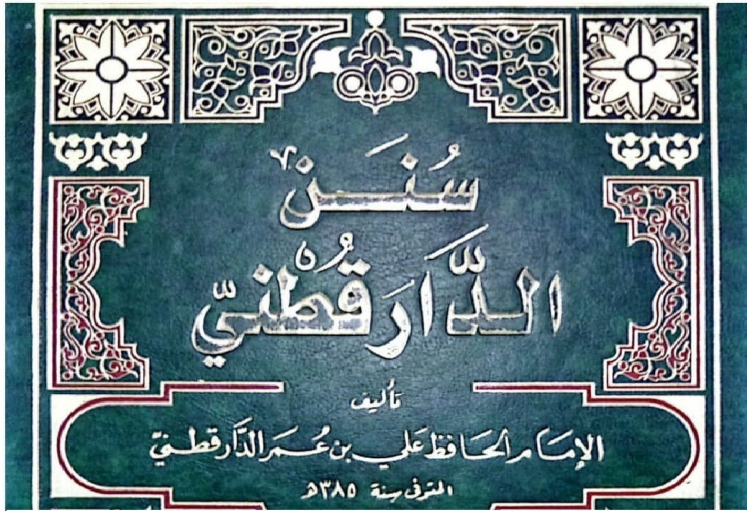 سُنَن
الدَّارَقُطْنيّ
تأليف
الإمَام الحَافِظ عَلي بن عُمَر الدَّارقطنيّ
المتوفى سنة ٣٨٥ھ